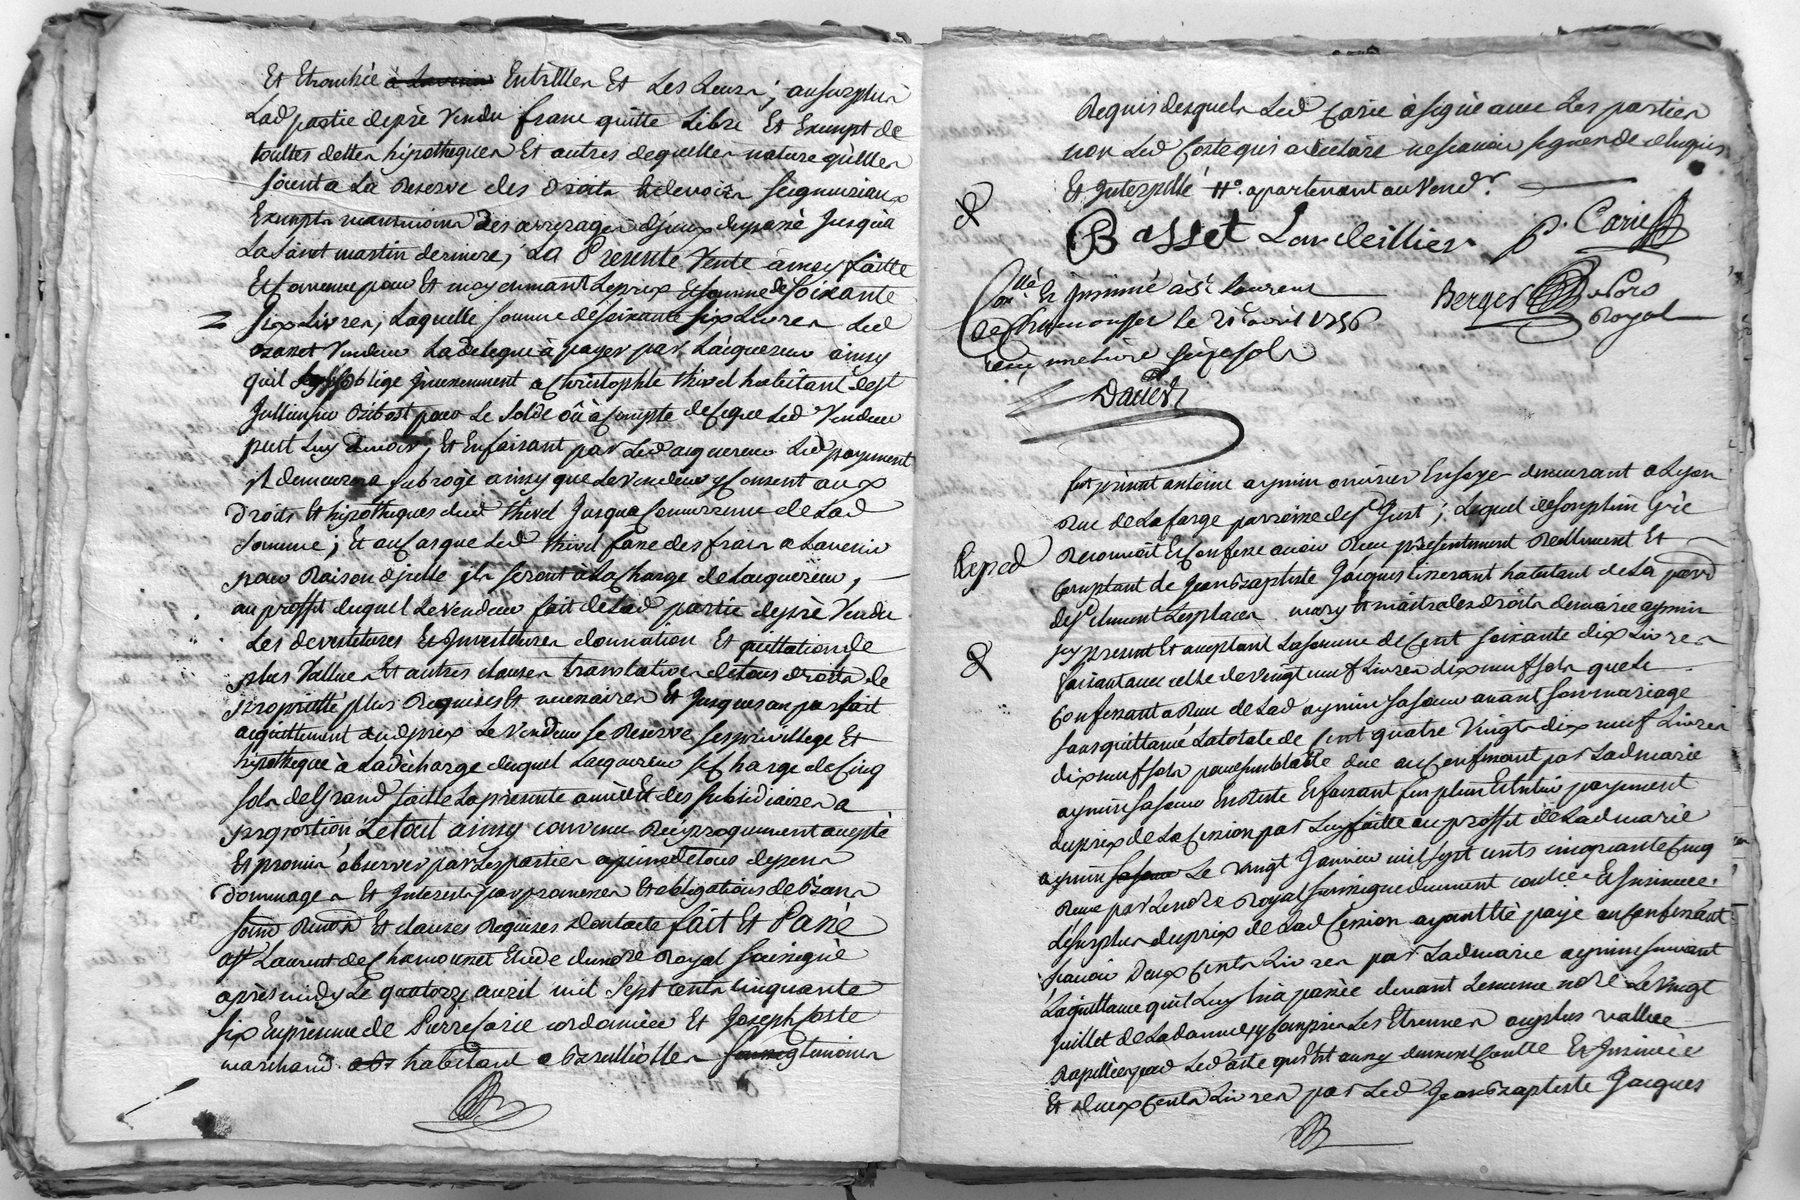 Et Etrouhée Entr'Elles Et Les Leurs; ausurplus
Lad partie depré Vendu franc quitte Libre Et Exempt de
touttes dettes hipotheques Et autres dequelles nature qu'elles
soient a La Reserve des droits Et devoirs seigneuriaux
Exempts neanmoins des arrerages d'jceux dupassé Jusqu'a
La saint martin derniere, La Presente Vente ainsy faitte
Et Convenue pour Et moyennant Leprix Et somme de soixante
six Livres, Laquelle somme de soixante six Livres Led
Vendeur La delegue à payer par L'acquereur ainsy
quil s'oblige à Christophle thivel habitant de st
Jullien sur bibost pour Le solde ou à Compte de Ceque Led Vendeur
peut Luy devoir, Et En faisant par Led acquereur Led payement
Il demeurera subrogé ainsy que Le Vendeur y Consent aux
Droits Et hipotheques dud thivel Jusqua Concurrence de Lad
somme; Et au Cas que Led thivel fasse des frais a L'avenir
pour Raison d'jcelle jls seront à La Charge de L'acquereur,
au proffit duquel Le Vendeur fait de Lad partie depré Vendu
Les devestitures Et Investitures donnation Et quittation de
plus Vallue Et autres clauses translatives de tous droits de
proprietté plus Requises Et necessaires Et Jusques au parfait
acquittement dud prix Le Vendeur se Reserve ses privillege Et
hipotheque à La decharge duquel Lacquereur se Charge de Cinq
sols de Grand taille La presente année Et des subsidiaires a
proportion Le tout ainsy convenu Reciproquement accepté
Et promis observer par Les parties a peine de tous depens
Dommages Et Interests par promesses Et obligations de Biens
soumis Renon Et clauses Requises Dont acte fait Et Passé
a st Laurent de Chamousset Etude du nore Royal soussigné
après midy Le quatorze avril mil sept cents cinquante
six En presence de Pierre Carie cordonnier Et Joseph Coste
marchand habitant a Brullioles temoins
Requis desquels Led Carie à signé avec Les parties
non Led Coste qui a declaré ne scavoir signer de ce Enquis
Et Interpellé #. apartenant au Vendr.
Basset Lardeillier P. Carie
Berger No Royal
Con.llé Et Insinué à St Laurent
De Chamousset le 21 avril 1756
Reçu seize sols
David
fut present antoine aymin ouvrier En soye demeurant a Lyon
Rue de La farge parroisse de St Just; Lequel de son plein Gré
Exped
Reconnoit Et Confesse avoir Receu presentement Reellement Et
Comptant de Jean Baptiste Jacques tisserant habitant de La parr
de St Clement Les places mary Et maitre des droits de marie aymin
jcy present Et acceptant La somme de Cent soixante dix Livres
faisant avec celle de vingt neuf Livres dix neuf sols que Le
Confessant a Receu de Lad aymin sa soeur avant son mariage
sans quittance La totale de Cent quatre Vingt dix neuf Livres
dix neuf sols pour semblable due au Confessant par Lad marie
aymin sa soeur En Reste Et faisant fin plein Et Entier payement
du prix de La Cession par Luy faitte au proffit de Lad marie
aymin Le vingt Janvier mil sept cents cinquante Cinq
Receue par Le nore Royal soussigné duement conllée Et Insinuée
Le surplus du prix de Lad Cession ayant été payé au Confessant
scavoir Deux Cents Livres par Lad marie aymin suivant
La quittance quil Luy En a passée devant Le meme nore Le vingt
Juillet de La d annee y Compris Les Etrennes au plus vallue
Rapellée par Led acte qui Est aussy duement Conllé Et Insinué
Et deux Cents Livres par Led Jean Baptiste Jacques